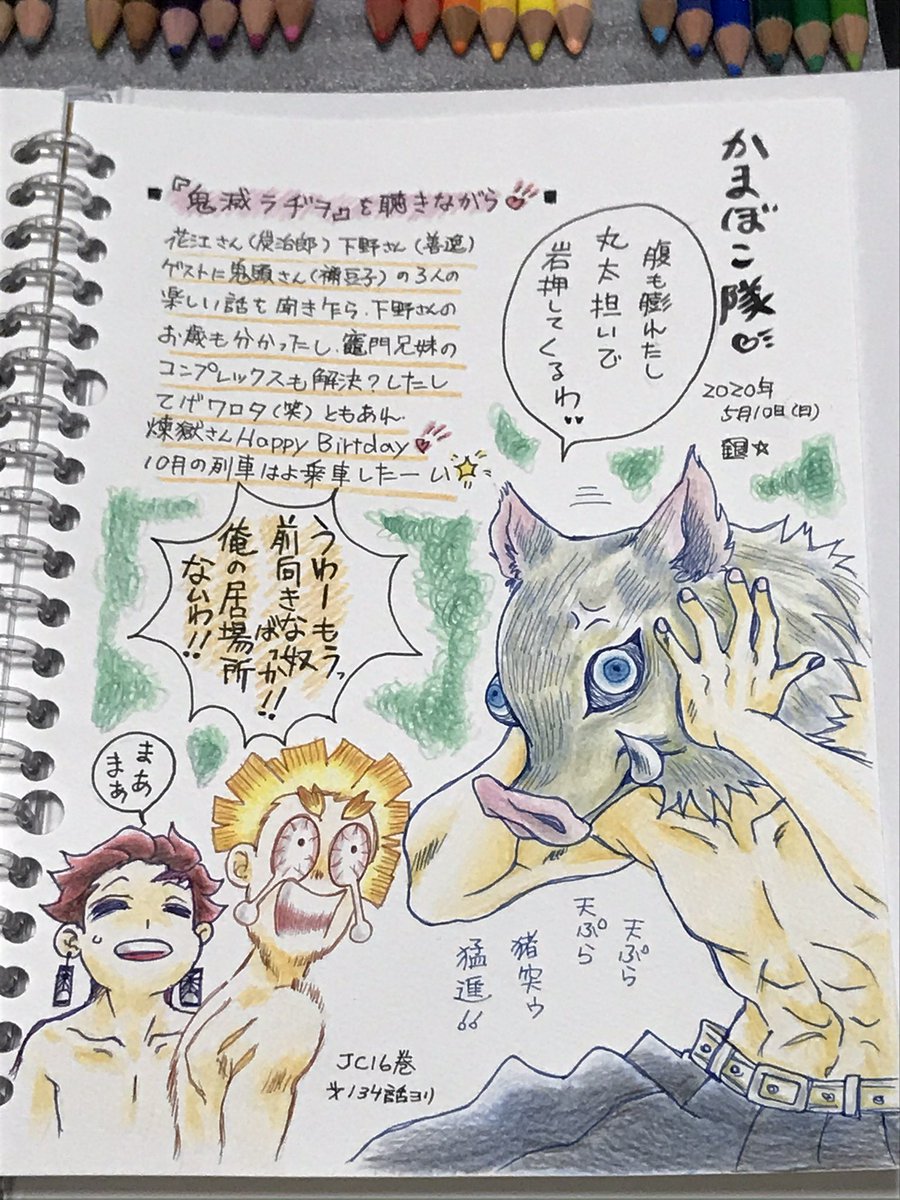 かまぼこ隊
2020年
5月10日(日)
銀☆
『鬼滅ラヂヲ』を聴きながら
花江さん(炭治郎)下野さん(善逸)
ゲストに鬼頭さん(禰豆子)の3人の
楽しい話を聞き乍ら、下野さんの
お歳も分かったし、竈門兄妹の
コンプレックスも解決?したし
てげワロタ(笑)ともあれ
煉獄さんHappy Birtday
10月の列車はよ乗車したーい
腹も膨れたし
丸太担いで
岩押してくるわ
うわーもうっ
前向きな奴
ばっか!!
俺の居場所
ないわ!!
まあ
まぁ
天ぷら
天ぷら
猪突ゥ
猛進
JC16巻
オ134話ヨリ